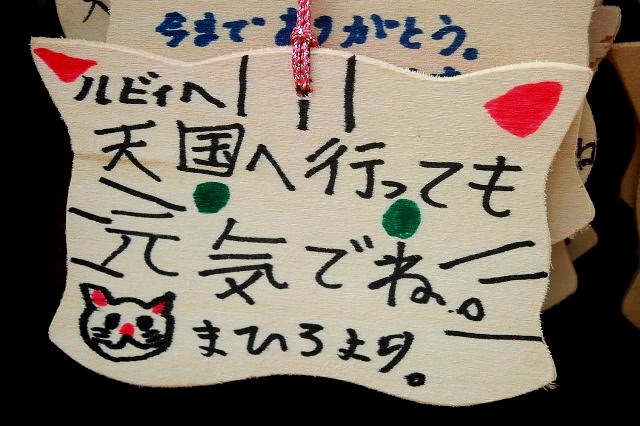 今までありがとう。
ルビィへ
天国へ行っても
元気でね。
まひろより。